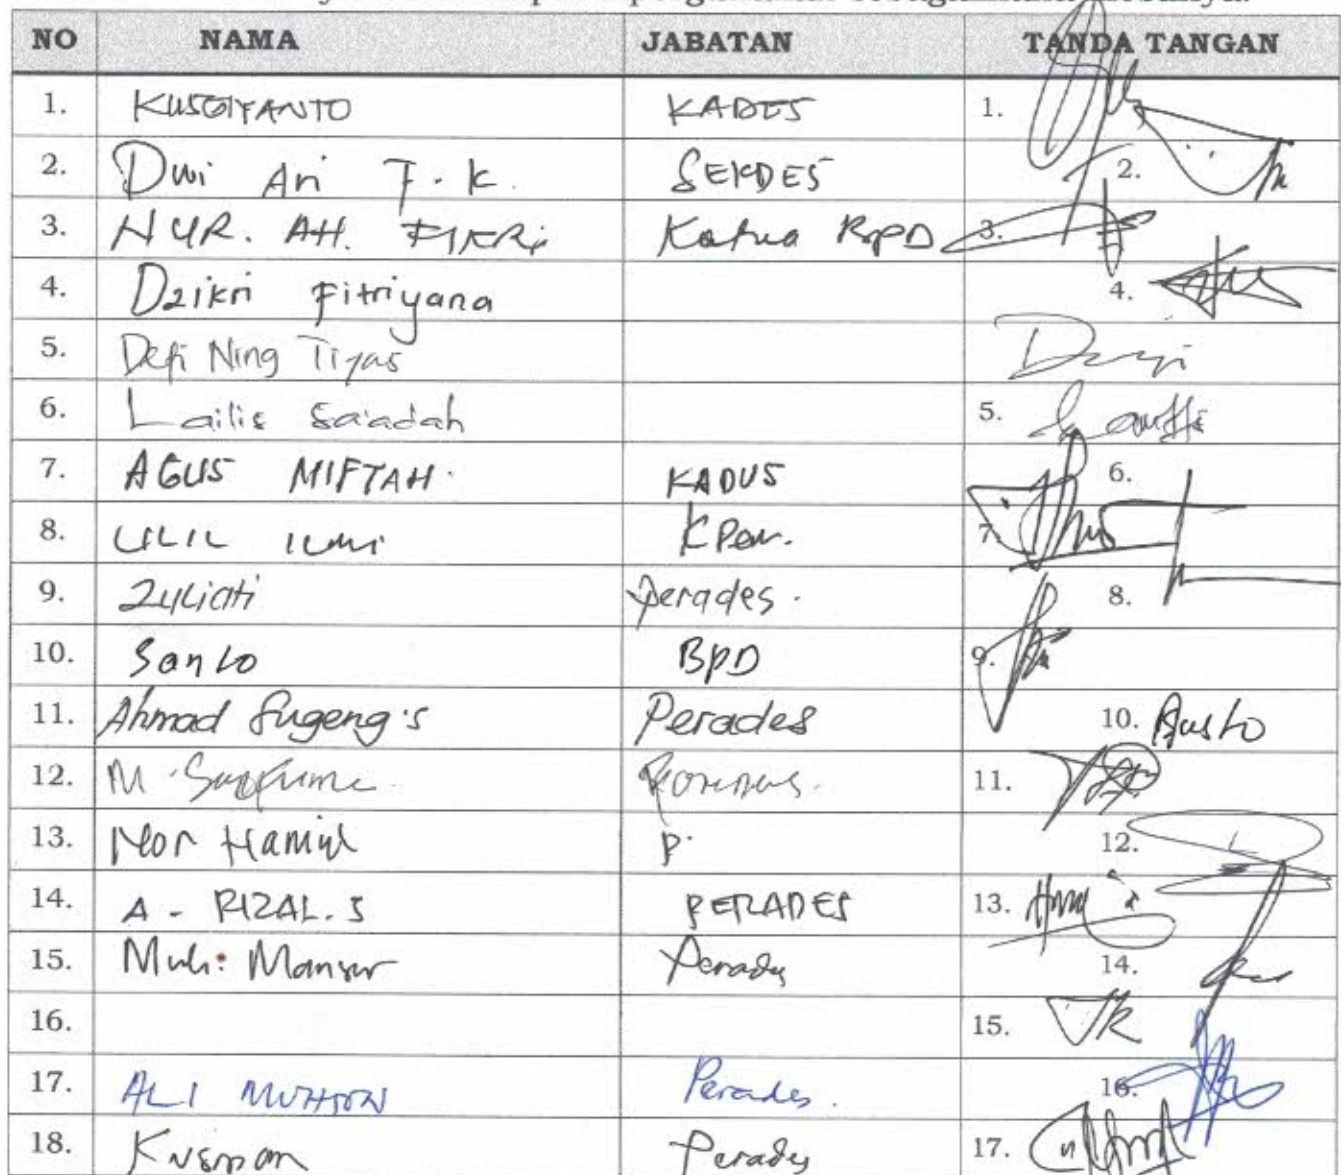 NO NAMA JABATAN TANDA TANGAN
1. KUSGIYANTO KADES 1.
2. Dwi Ari F.K. SEKDES 2.
3. NUR. AH. FIKRi Ketua BPD 3.
4. Dzikri Fitriyana 4.
5. Defi Ning Tiyas
6. Lailis Sa'adah 5.
7. AGUS MIFTAH. KADUS 6.
8. ULIL ILMI 7.
9. Zuliati perades. 8.
10. Santo BPD 9.
11. Ahmad Sugeng's Perades 10. Santo
12. M. 11.
13. Nor Hamid P. 12.
14. A - RIZAL. S PERADES 13.
15. Muh: Mansur Perades 14.
16. 15.
17. ALI Perades. 16.
18. Kusman Perades 17.